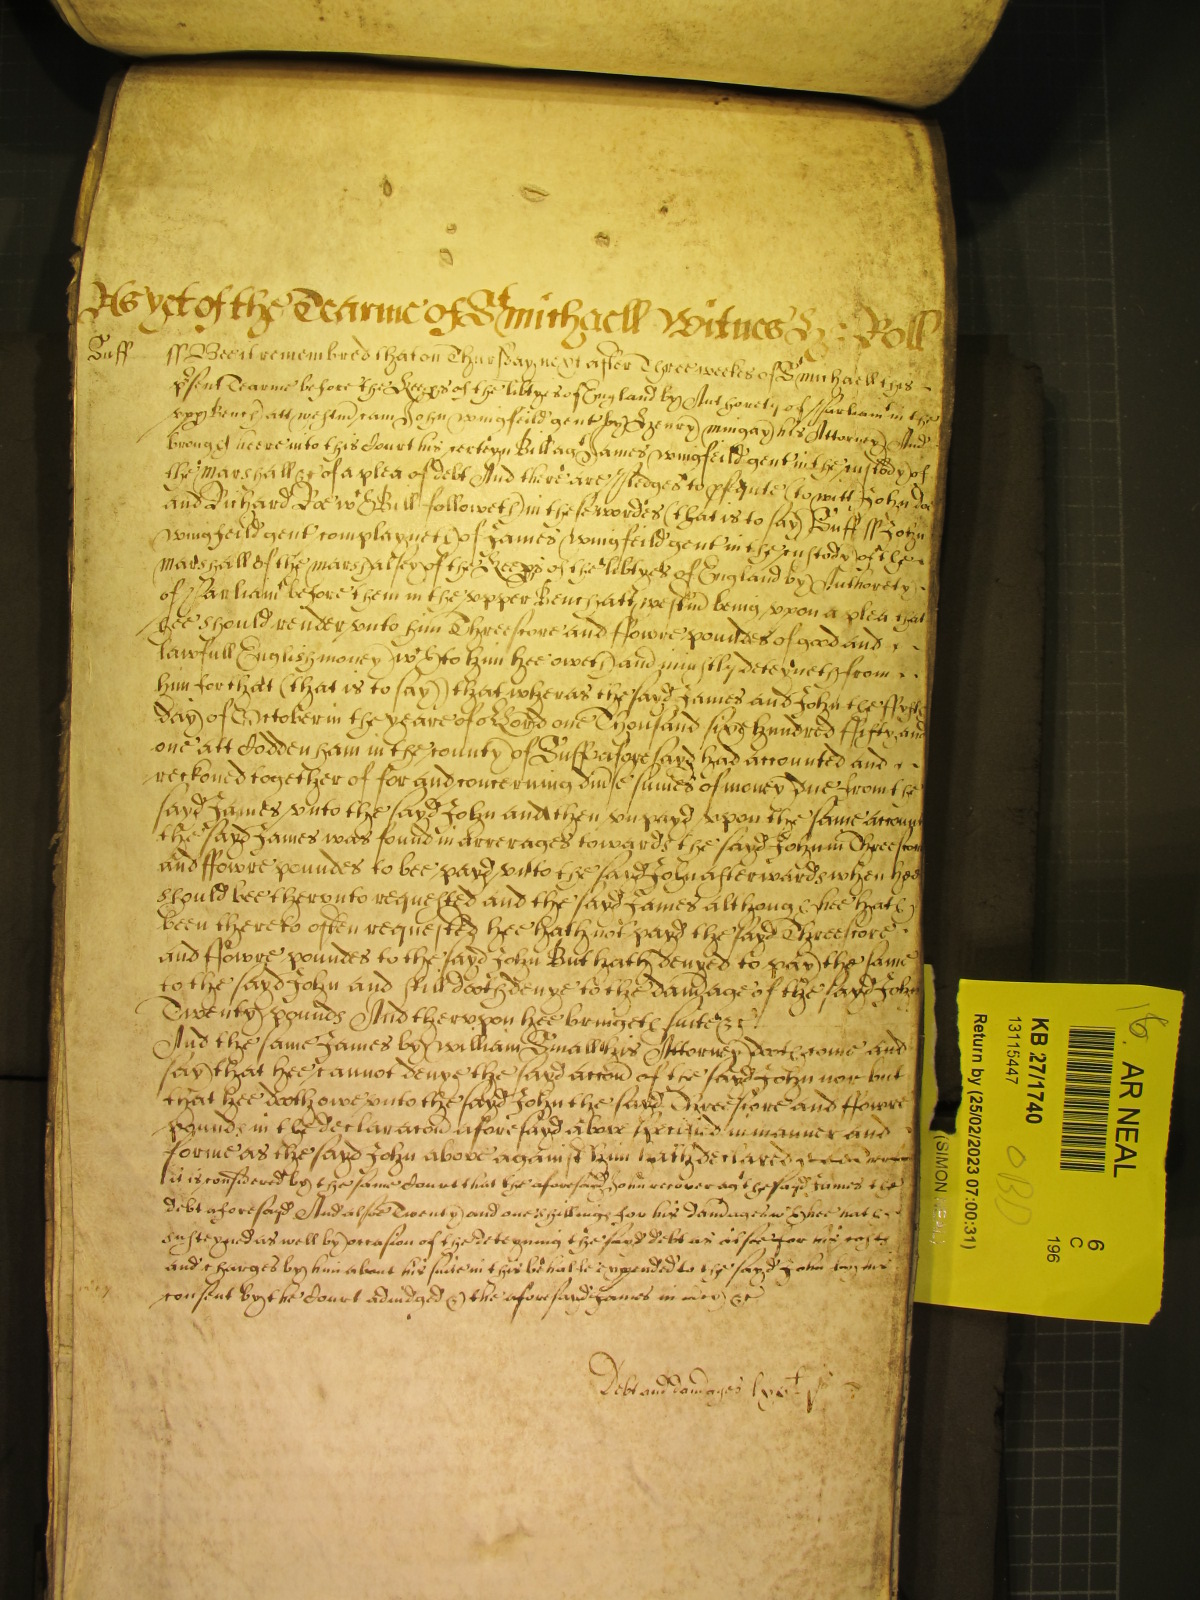 As yet of the Tearme of St Michaell Witnes &c: Roll
Suff ss Bee it remembred that on Thursday next after Three weekes of St Michaell this
psent Tearme before the Keeps of the libtyes of England by Authorety of Parliamt in the
vpp Bench att westm cam John Wingfeild gent by Henry Mingay his Attorney And
brought heere into this Court his certeyn Bill agt James Wingfeild gent in the custody of
the Marshall &c of a plea of debt And there are Pledges to psecute (to witt) John Doe
and Richard Roe wch Bill followeth in these wordes (that is to say) Suff ss John
Wingfeild gent complayneth of James Wingfeild gent in the custody of the
Marshall of the Marshalsey of the Keeps of the libtyes of England by Authorety
of Parliamt before them in the vpper Bench att westm being vpon a plea that
hee should render vnto him Threescore and ffowre poundes of good and
lawfull English money wch to him hee oweth and iniustly deteyneth from
him for that (that is to say) that wheras the sayd James and John the ffyrst
day of October in the yeare of or Lord one Thousand sixe hundred ffifty and
one att Coddenham in the county of Suff aforesayd had accounted and
reckoned together of for and concerning divse sumes of money due from the
sayd James vnto the sayd John and then vnpayd vpon the same accompt
the sayd James was found in arrerages towards the sayd John in Threescore
and ffowre poundes to bee payd vnto the sayd John afterwards when hee
should bee thervnto requested and the sayd James although hee hath
been thereto often requested hee hath not payd the sayd Threescore
and ffowre poundes to the sayd John But hath denyed to pay the same
to the sayd John and still doth denye to the damage of the sayd John
Twenty pounds And thervpon hee bringeth suite &c
And the same James by William Small his Attorney doth come and
say that hee cannot denye the sayd accon of the sayd John nor but
that hee doth owe vnto the sayd John the sayd Threescore and ffowre
pounds in the declaracon aforesayd above specified in manner and
forme as the sayd John above against him hath declared
it is considered by the same Court that the aforesayd John recover agt the sayd James the
debt aforesayd And alsoe Twenty and one shillings for his damages wch hee hath
susteyned as well by occasion of the deteyning the sayd debt as alsoe for his costs
and charges by him about his suite in this behalfe expended to the sayd John by his
consent by the Court adiudged &c the aforesayd James in mcy &c
Debt and damages lxvli js
16. AR NEAL
6
C
196
KB 27/1740
13115447
OBD
Return by (25/02/2023 07:00:31)